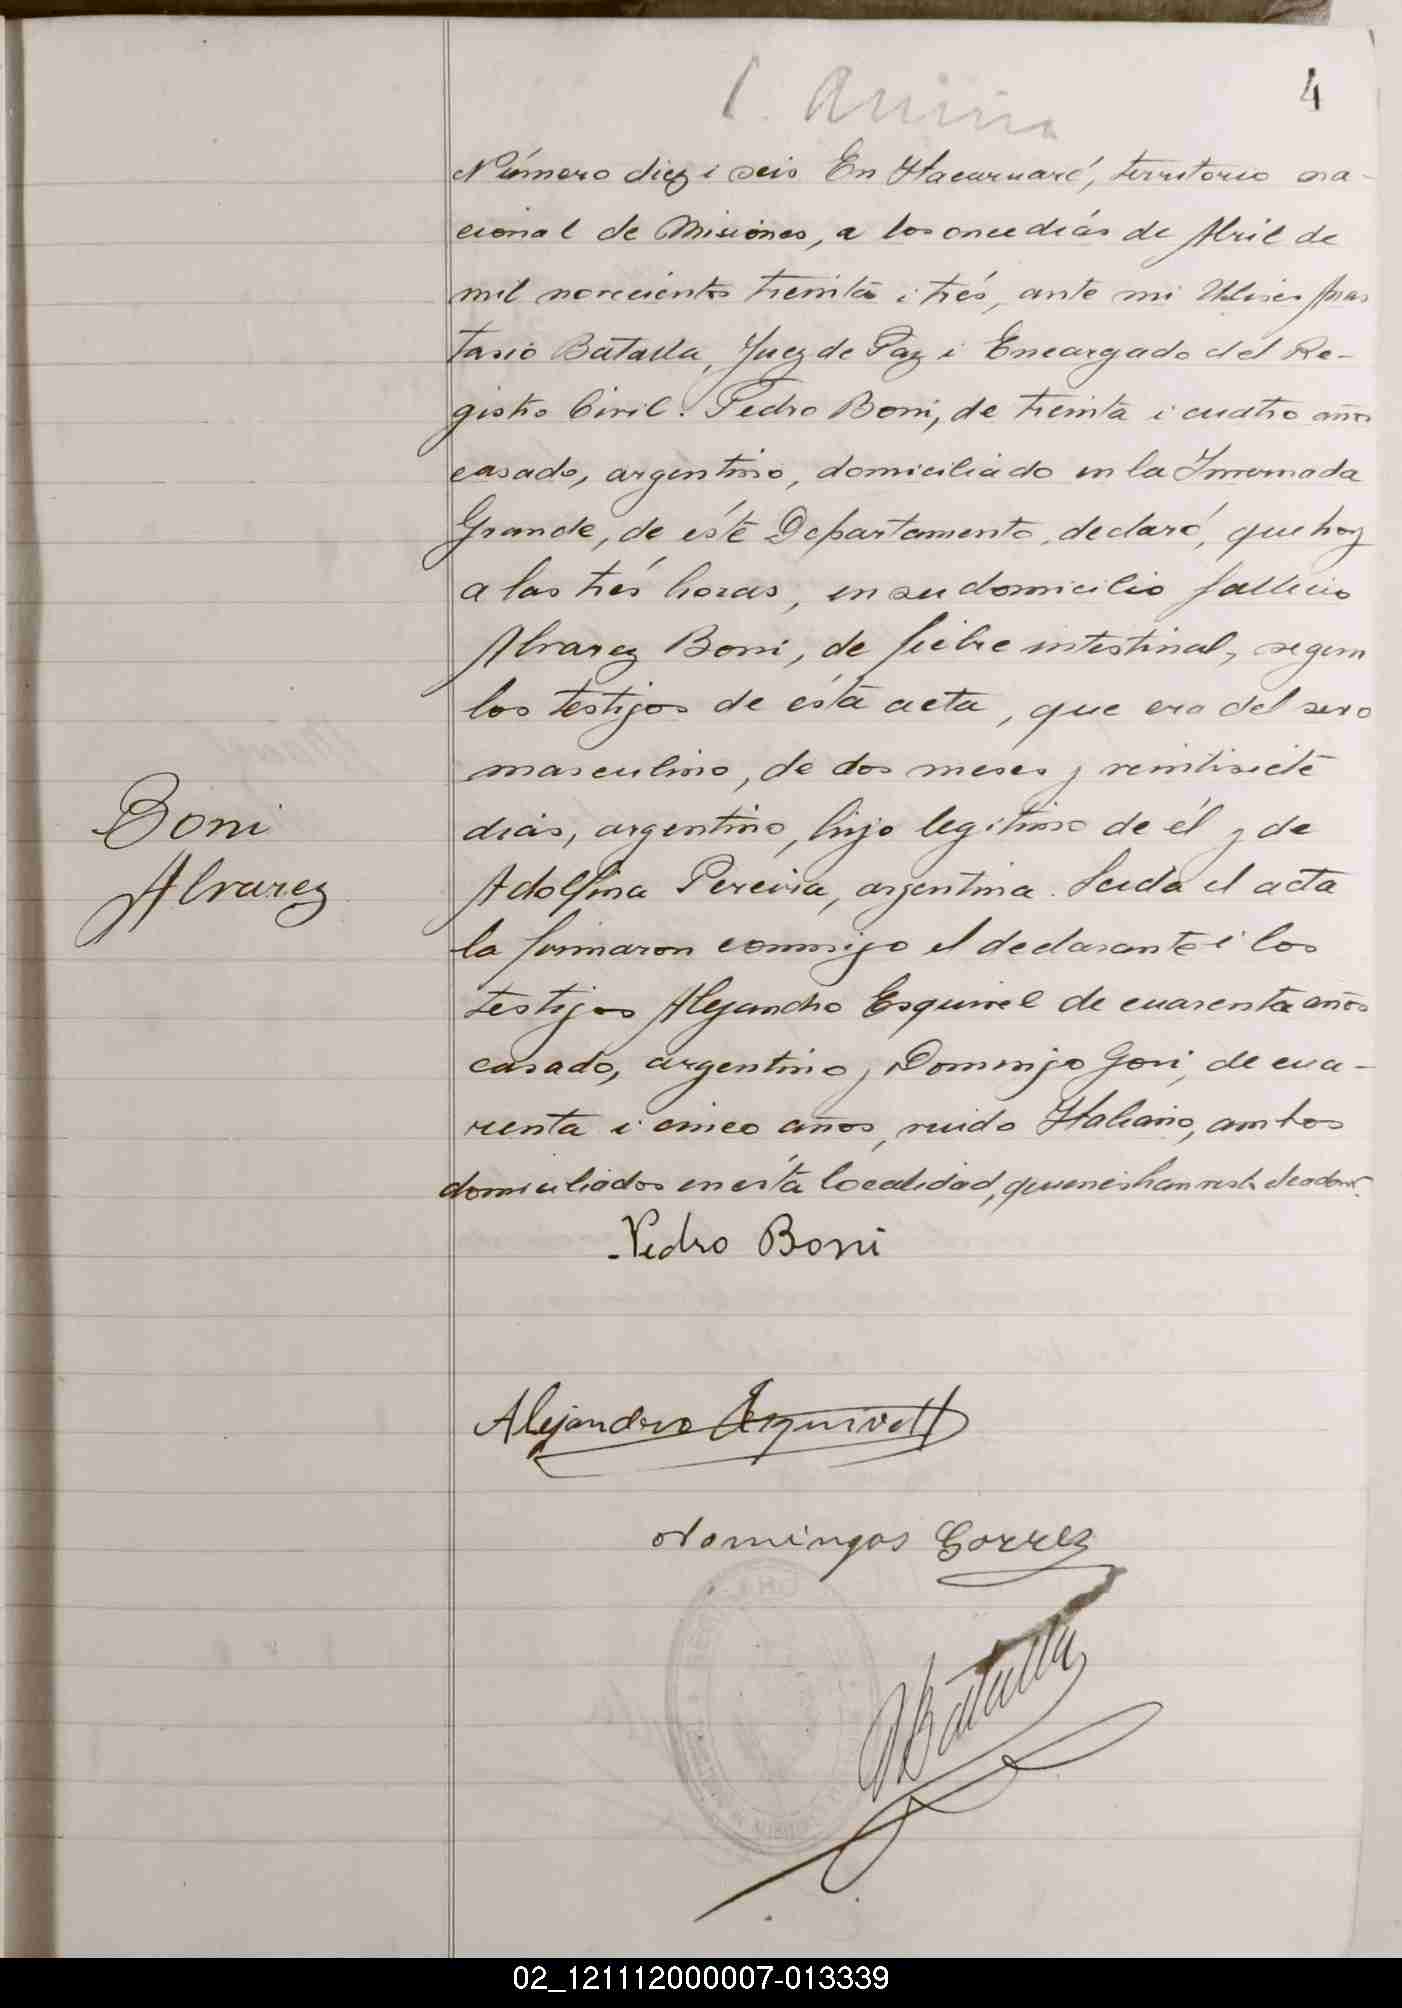 4
Número diez i seis En Itacaruaré, territorio na-
cional de Misiones, a los once dias de Abril de
mil novecientos treinta i trés, ante mi Ulises Anas
tasio Batalla, Juez de Paz i Encargado del Re-
gistro Civil. Pedro Boni, de treinta i cuatro años
casado, argentino, domiciliado en la Invernada
Grande, de éste Departamento, declaró, que hoy
a las trés horas, en su domicilio fallecio
Alvarez Boni, de fiebre intestinal, segun
los testijos de ésta acta, que era del sexo
masculino, de dos meses y veintisiete
dias, argentino, hijo legitimo de él y de
Boni
Alvarez
Adolfina Pereira, argentina. Leida el acta
la firmaron conmigo el declarante i los
testijos Alejandro Esquivel de cuarenta años
casado, argentino y Domingo Gori, de cua-
renta i cinco años, viudo Italiano, ambos
domiciliados en ésta localidad, quienes han
Pedro Boni
Alejandro Esquivel
Domingos
Batalla
02_121112000007-013339